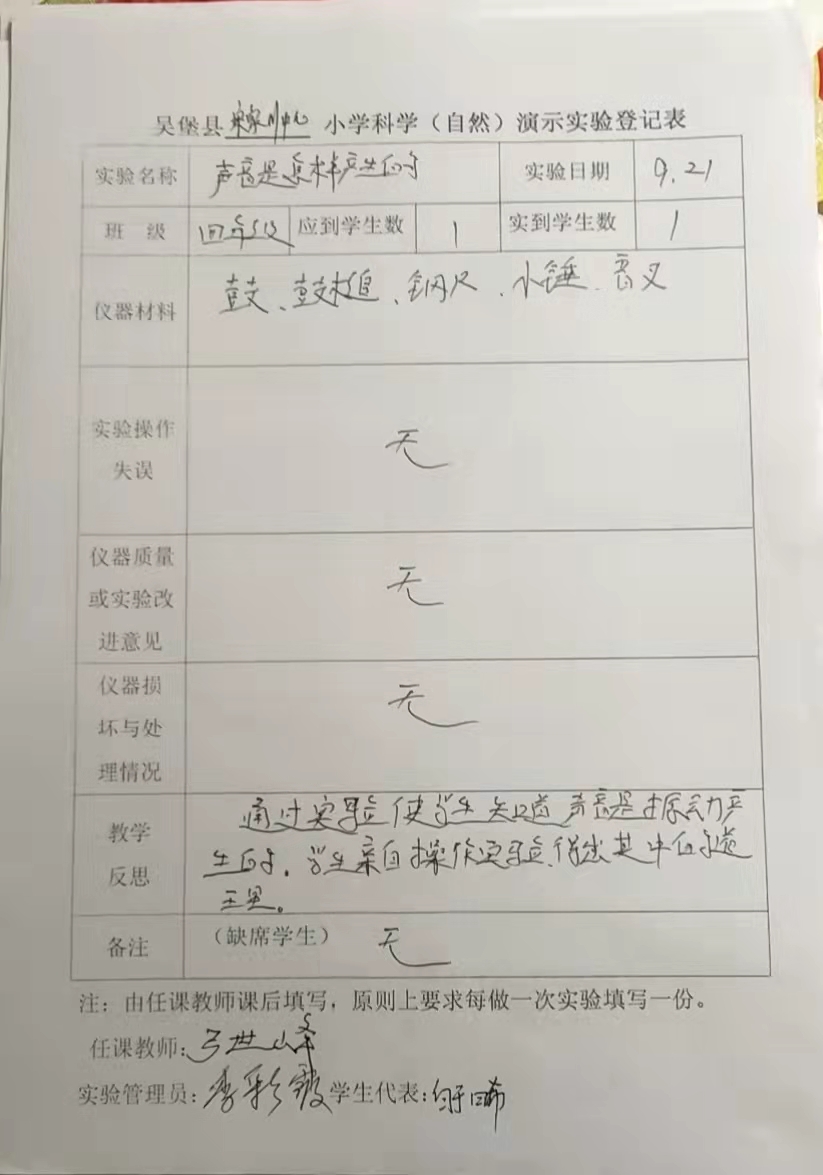 吴堡县宋家川中心 小学科学（自然）演示实验登记表
实验名称 声音是怎样产生的 实验日期 9.21
班 级 四年级 应到学生数 1 实到学生数 1
仪器材料 鼓、鼓槌、钢尺、小锤、音叉
实验操作
失误 无
仪器质量
或实验改
进意见 无
仪器损
坏与处
理情况 无
通过实验使学生知道声音是振动产
教学
反思 生的，学生亲自操作实验，得出其中的道
理。
备注 （缺席学生） 无
注：由任课教师课后填写，原则上要求每做一次实验填写一份。
任课教师：世峰
实验管理员：李彩霞 学生代表：